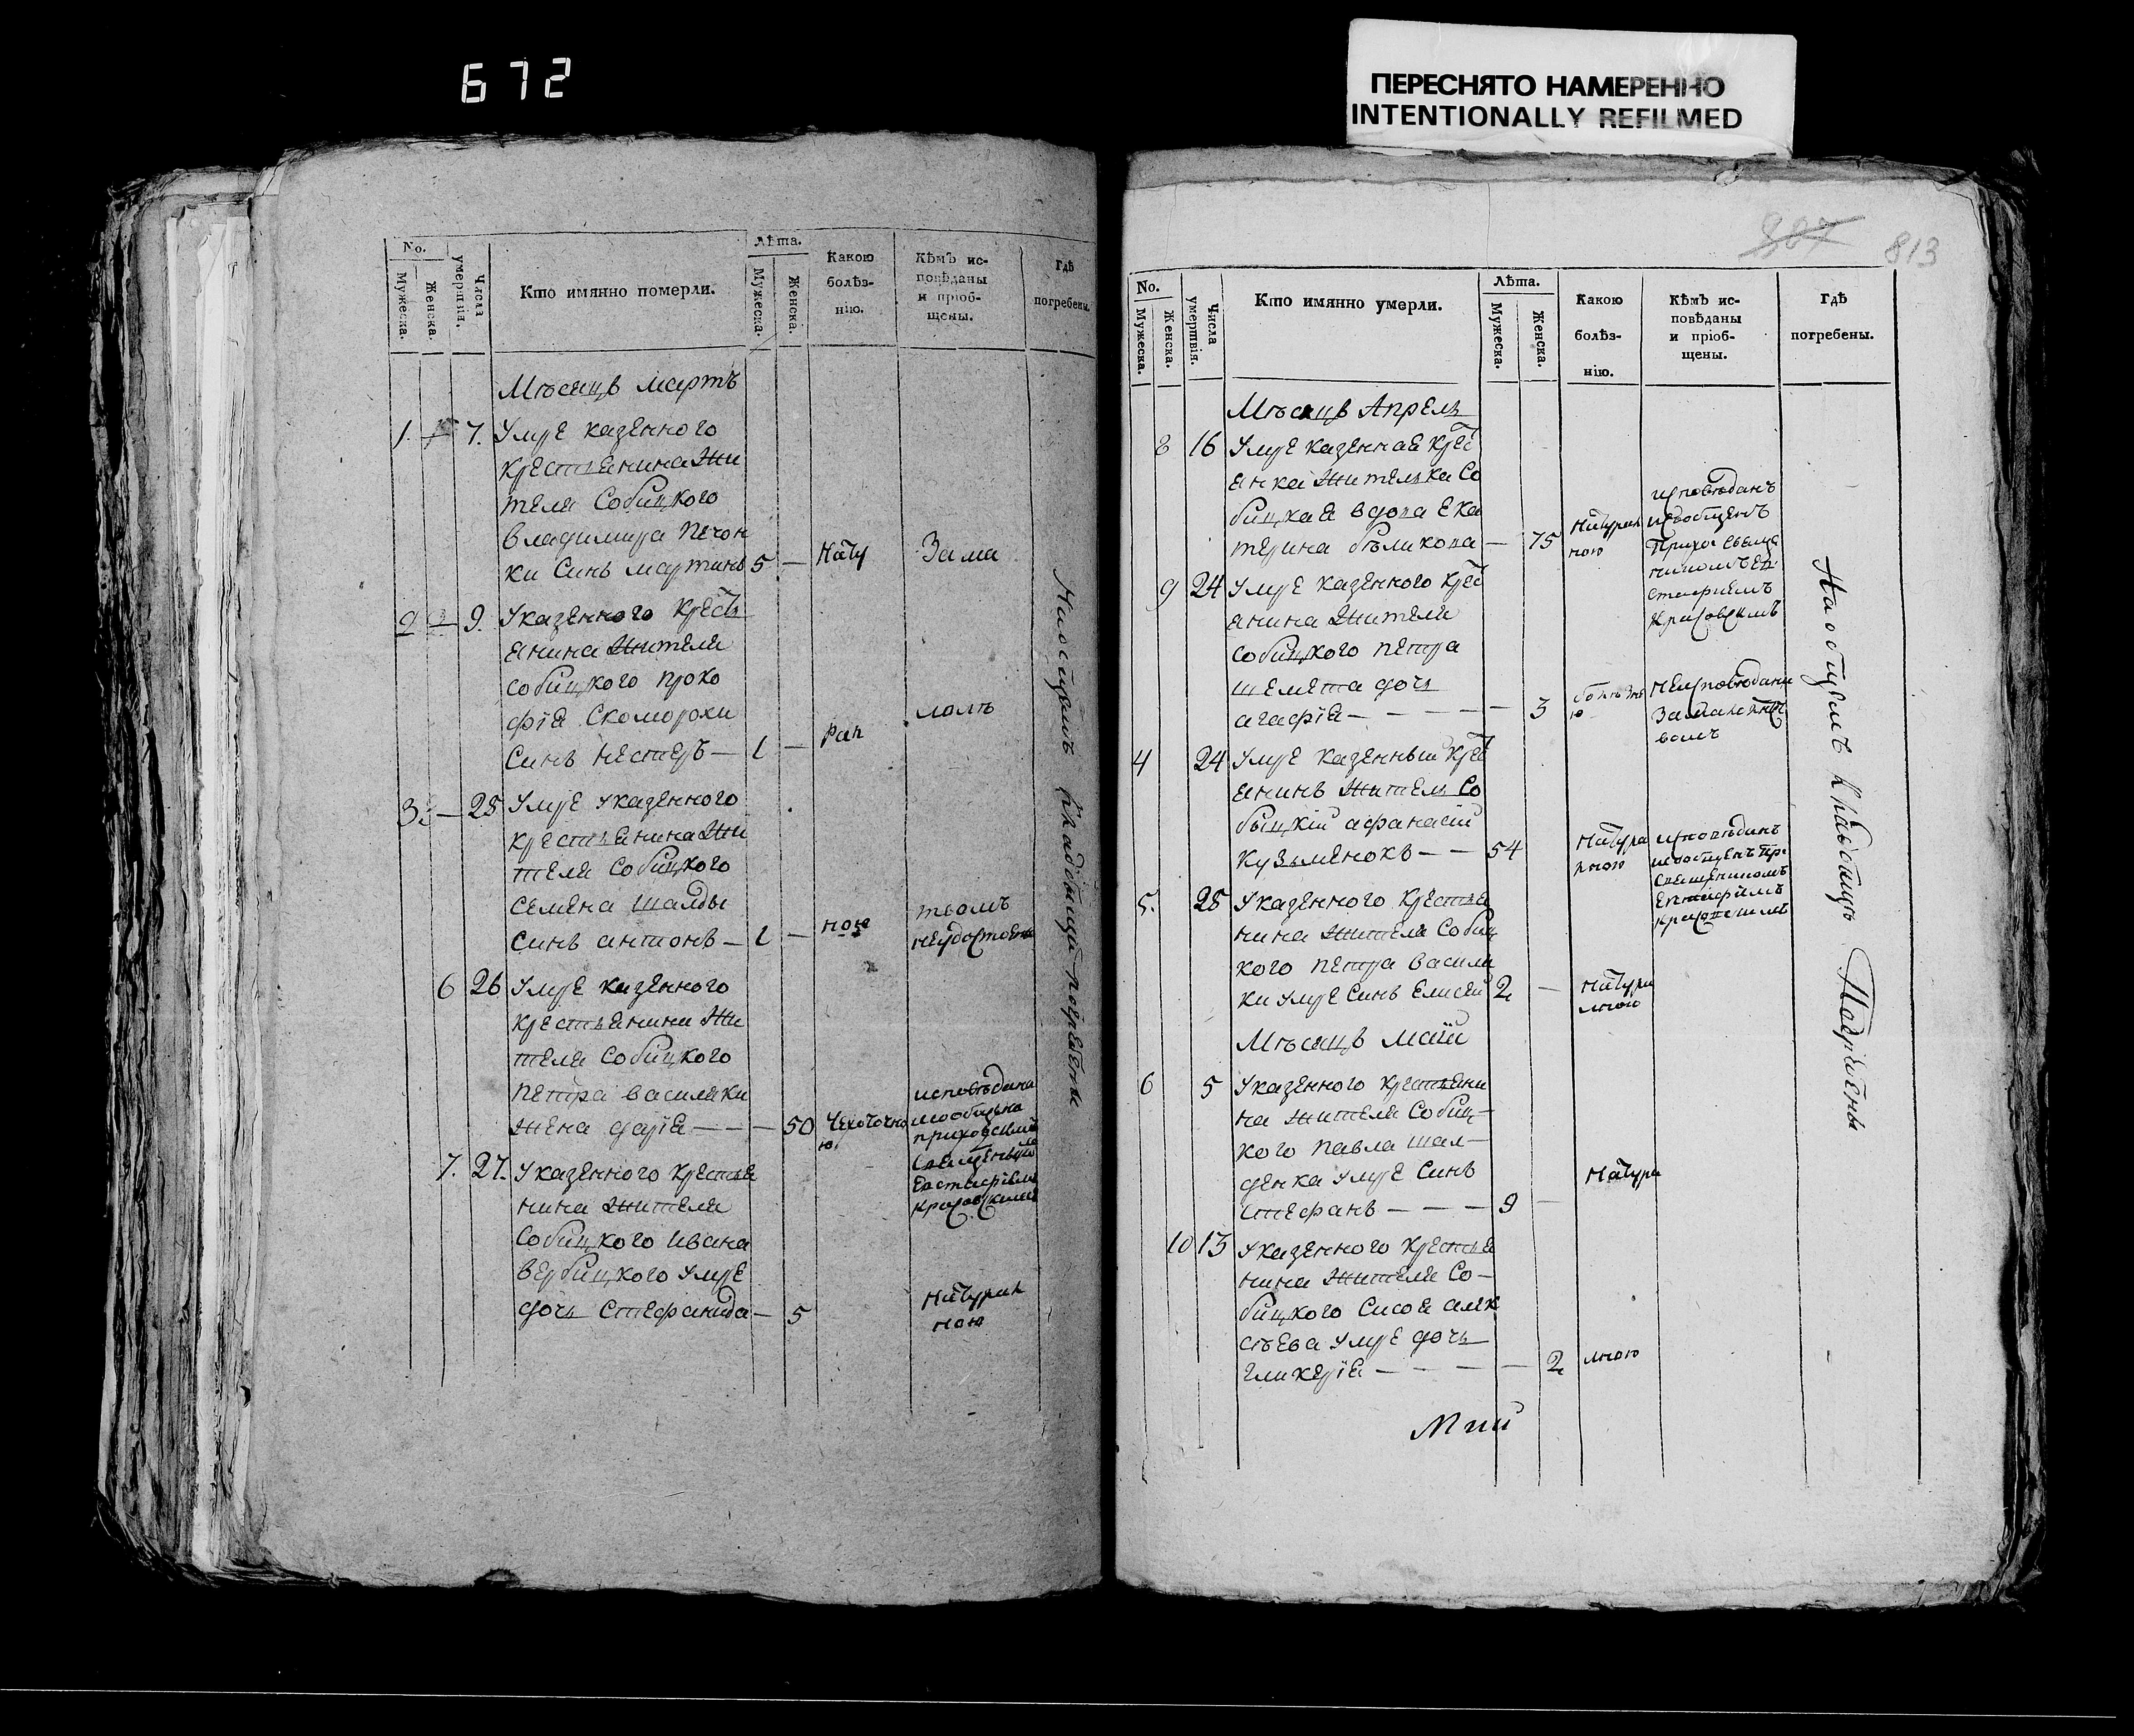 672
ПЕРЕСНЯТО НАМЕРЕННО
INTENTIONALLY REFILMED
No.
Мужеска.
Женска.
Числа умертвія.
Кто имянно померли.
Лѣта.
Мужеска.
Женска.
Какою
болѣз-
нію.
Кѣмъ ис-
повѣданы
и пріоб-
щены.
Гдѣ
погребены.
Мѣсяцъ Мартъ
1. 7. Умре казенного
крестьянина жи
теля Собицкого
Владимира Печон
ки Синъ Мартинъ 5 — Нату Зама
2 9. У казенного крест
янина жителя
собицкого проко
фія Скоморохи
Синъ Нестеръ — 1 — рал лолѣ
3 — 25 Умре у казенного
крестьянина жи
теля Собицкого
Семена Шалды
Синъ антонъ — 1 — ною твомъ
неудостоен
6 26 Умре казенного
крестьянина жи
теля Собицкого
Петра василяки
жена дарія — — — 50 Чехоточно
ю
исповѣдана
приходским
Священником
Евстафіемъ
Красовскимъ
7. 27. У казенного крестья
нина жителя
Собицкого Ивана
вербицкого умре
дочь Стефанида — 5 Натурал
ною
На общемъ кладбищѣ погребены
887
813
No.
Мужеска.
Женска.
Числа умертвія.
Кто имянно умерли.
Лѣта.
Мужеска.
Женска.
Какою
болѣз-
нію.
Кѣмъ ис-
повѣданы
и пріоб-
щены.
Гдѣ
погребены.
Мѣсяцъ Апрель
8 16 Умре казенная крес
янка жителька Со
бицкая вдова Ека
терина бѣликова — 75 Натурал
ною
исповѣданъ
Евстафіемъ
Красовскимъ
9 24 Умре казенного крес
янина жителя
собицкого Петра
шемета дочь
агафія — — — — — 3
Неисповѣдани
За малолѣтст
вомъ
4 24 Умре казенный крес
янинъ житель Со
быцкій афанасій
Кузьменокъ — — 54 Натура
лною
исповѣданъ
Священикомъ
Евстафіемъ
Красовскимъ
5. 28 У казенного крестья
нина жителя Собиц
кого Петра васили
ки умре Синъ Елисей 2 — Натура
лною
Мѣсяцъ Маій
6 5 У казенного крестьяни
на жителя Собиц—
кого Павла Шал—
денка умре Синъ
Стефанъ — — — 9 — Натура
10 13 У казенного крестья
нина жителя Со—
бицкого Сисоя алек
сѣева умре дочь
гликерія — — — — — 2 лною
На общемъ кладбищѣ Погребены
Маій